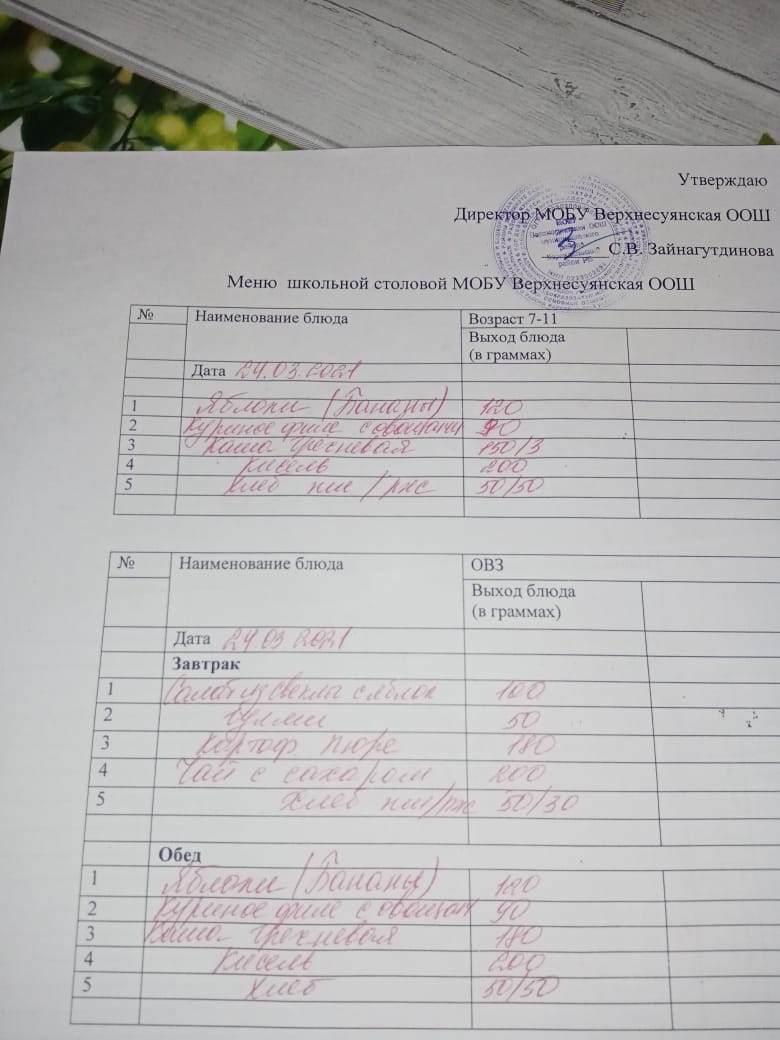 Утверждаю
Директор МОБУ Верхнесуянская ООШ
С.В. Зайнагутдинова
Меню школьной столовой МОБУ Верхнесуянская ООШ
№ Наименование блюда Возраст 7-11
Выход блюда
(в граммах)
Дата 24.03.2021
1 Яблоки (Бананы) 120
2 Куриное филе с овощами 90
3 Каша гречневая 150/3
4 Кисель 200
5 Хлеб пш/рж 50/50
№ Наименование блюда ОВЗ
Выход блюда
(в граммах)
Дата 24.03.2021
Завтрак
1 Салат из свеклы с яблок 100
2 50
3 Картоф пюре 180
4 Чай с сахаром 200
5 Хлеб пш/рж 50/30
Обед
1 Яблоки (Бананы) 120
2 Куриное филе с овощам 90
3 Каша гречневая 180
4 Кисель 200
5 Хлеб 50/50